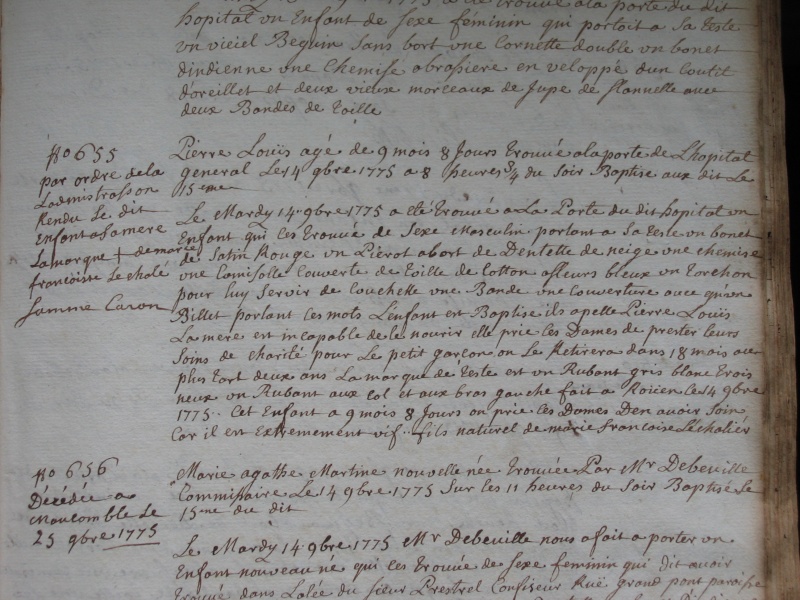 hopital un Enfant de sexe feminin qui portoit a sa teste
un vieiel Beguin sans bort une Cornette double un bonet
dindienne une Chemise abrasiere en veloppé dun Coutil
doreillet et deux vieux morceaux de Jupe de flannelle avec
deux Bandes de toille
No 655
par ordre dela
Ladministrasson
Rendu Le dit
Enfant a sa mere
La marque + de marie
francoise Le chalé
femme Caron
Pierre Louïs agé de 9 mois 8 Jours trouvé a la porte de L'hopital
general Les 14 9bre 1775 a 8 heures 3/4 du Soir Baptisé aux dit Le
15eme
Le Mardy 14 9bre 1775 a eté trouvé a La Porte du dit hopital un
Enfant qui ces trouvé de Sexe Masculin portant a Sa teste un bonet
de Satin Rouge un Pierot a bort de Dentelle de neige une chemise
une Camisolle Couverte de toille de Cotton a fleurs bleux un torchon
pour luy Servir de Couchette une Bande une Couverture avec
Billet portant ces mots Lenfant est Baptisé ils apelle Pierre Louis
La mere est incapable de le nourir elle prie ces Dames de prester leurs
Soins de charité pour Le petit garcon on Le Retirera dans 18 mois au
plus tart deux ans La marque de teste est un Rubant gris blanc trois
neux un Rubant aux Col et aux bras gauche fait a Roüen le 14 9bre
1775.. Cet Enfant a 9 mois 8 Jours on prie ces Dames Den avoir Soin
Car il est Extremement vif.. fils naturel de marie francoise Lechalier
No 656
Décédée a
Maucomble Le
25 9bre 1775
Marie agathe Martine nouvelle née trouvée Par Mr Debeville
Commissaire Le 14 9bre 1775 Sur les 11 heures du Soir Baptisé Le
15me du dit
Le Mardy 14 9bre 1775 Mr Debeville nous a fait a porter un
Enfant nouveau né qui ces trouvée de Sexe feminin qui dit avoir
trouvé dans Lalée du sieur Prestrel Confiseur Rue grand pont paroisse